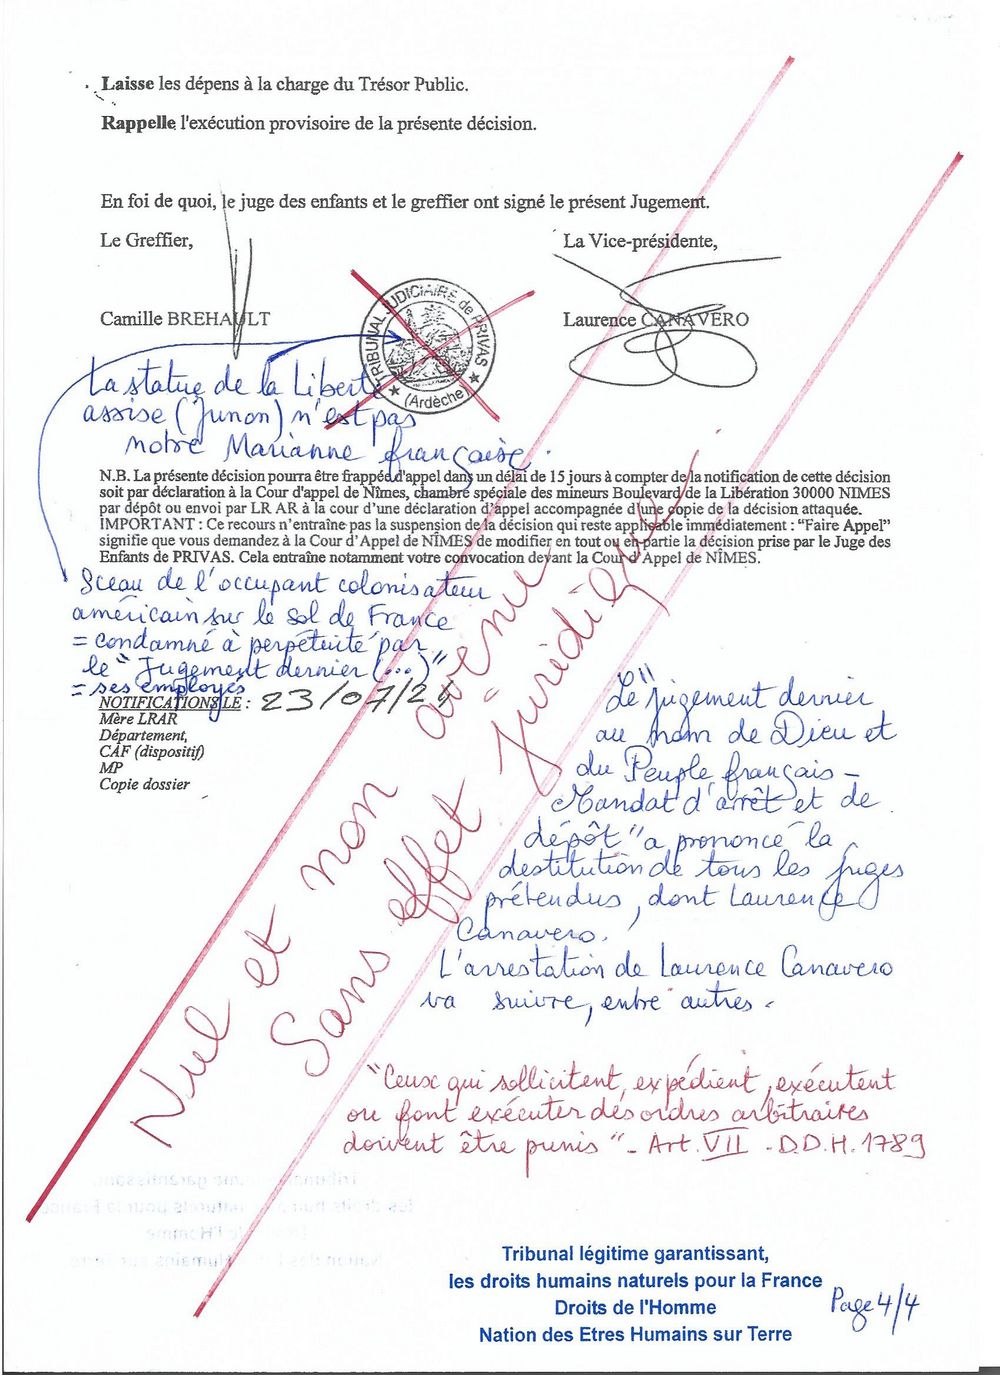 Laisse les dépens à la charge du Trésor Public.
Rappelle l'exécution provisoire de la présente décision.
En foi de quoi, le juge des enfants et le greffier ont signé le présent Jugement.
Le Greffier,
La Vice-présidente,
Camille BREHAULT
TRIBUNAL JUDICIAIRE de PRIVAS
(Ardèche)
Laurence CANAVERO
La statue de la Liberté
assise (Junon) n'est pas
notre Marianne française.
N.B. La présente décision pourra être frappée d'appel dans un délai de 15 jours à compter de la notification de cette décision
soit par déclaration à la Cour d'appel de Nîmes, chambre spéciale des mineurs Boulevard de la Libération 30000 NIMES
par dépôt ou envoi par LR AR à la cour d'une déclaration d'appel accompagnée d'une copie de la décision attaquée.
IMPORTANT : Ce recours n'entraîne pas la suspension de la décision qui reste applicable immédiatement : "Faire Appel"
signifie que vous demandez à la Cour d'Appel de NÎMES de modifier en tout ou en partie la décision prise par le Juge des
Enfants de PRIVAS. Cela entraîne notamment votre convocation devant la Cour d'Appel de NÎMES.
Sceau de l'occupant colonisateur
américain sur le sol de France
= condamné à perpétuité par
le "Jugement dernier (...)"
= ses employés
NOTIFICATIONS LE : 23/07/24
Mère LRAR
Département,
CAF (dispositif)
MP
Copie dossier
Nul et non avenu
Sans effet juridique
Le "jugement dernier
au nom de Dieu et
du Peuple français -
Mandat d'arrêt et de
dépôt" a prononcé la
destitution de tous les juges
prétendus, dont Laurence
Canavero.
L'arrestation de Laurence Canavero
va suivre, entre autres.
"Ceux qui sollicitent, expédient, exécutent
ou font exécuter des ordres arbitraires
doivent être punis" - Art. VII - D.D.H. 1789
Tribunal légitime garantissant,
les droits humains naturels pour la France
Droits de l'Homme
Nation des Etres Humains sur Terre
Page 4/4